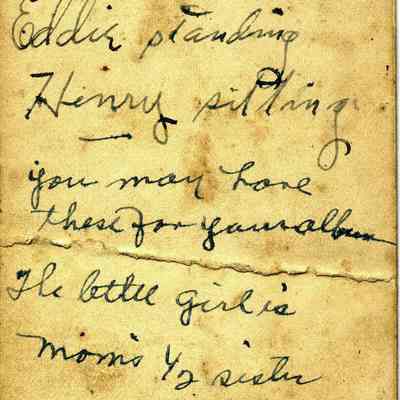 Eddie standing
Henry sitting
you may have
these for your album
The little girl is
mom's 1/2 sister